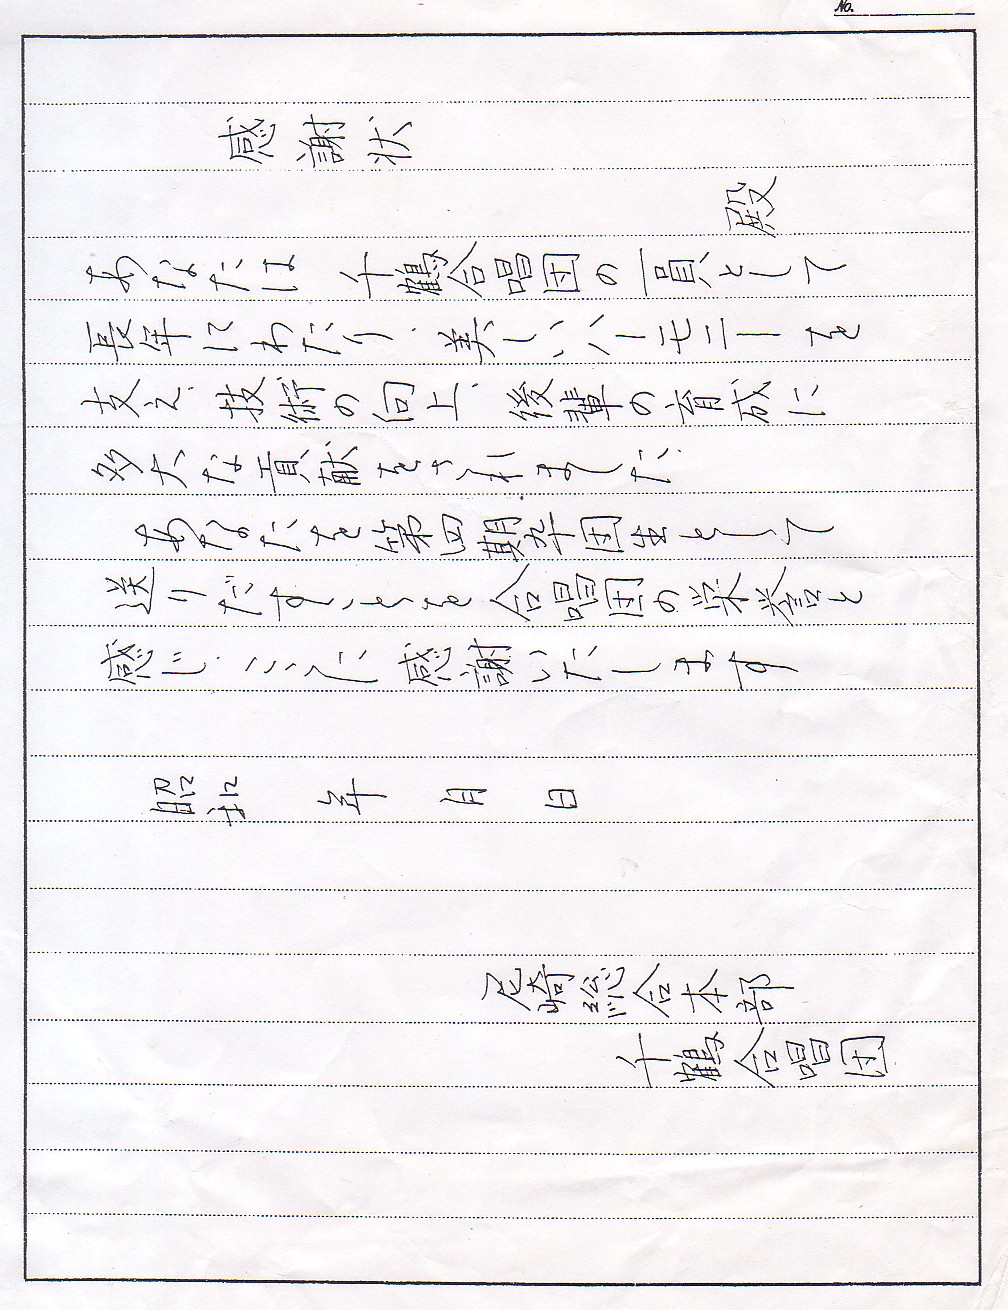 No.
感謝状
殿
あなたは 千鶴合唱団の一員として
長年にわたり、美しいハーモニーを
支え、技術の向上、後輩の育成に
多大な貢献をされました。
あなたを第四期卒団生として
送りだすことを合唱団の栄誉と
感じ、ここに感謝いたします
昭和 年 月 日
尼崎総合本部
千鶴合唱団